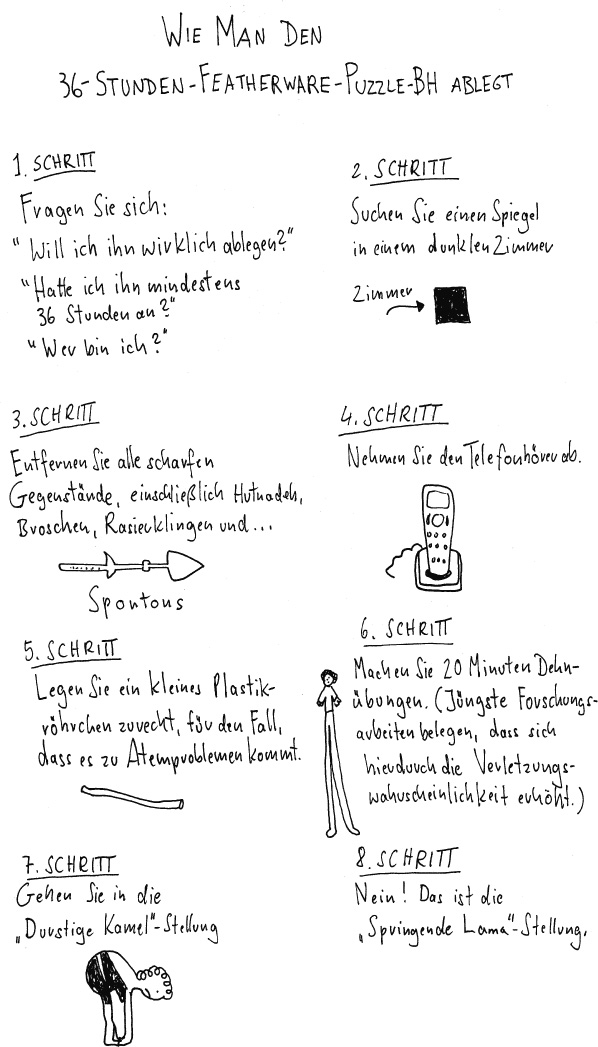 WIE MAN DEN
36-STUNDEN-FEATHERWARE-PUZZLE-BH ABLEGT
1. SCHRITT
Fragen Sie sich:
"Will ich ihn wirklich ablegen?"
"Hatte ich ihn mindestens
36 Stunden an?"
"Wer bin ich?"
2. SCHRITT
Suchen Sie einen Spiegel
in einem dunklen Zimmer
Zimmer
3. SCHRITT
Entfernen Sie alle scharfen
Gegenstände, einschließlich Hutnadeln,
Broschen, Rasierklingen und...
Spontons
4. SCHRITT
Nehmen Sie den Telefonhörer ab.
5. SCHRITT
Legen Sie ein kleines Plastik-
röhrchen zurecht, für den Fall,
dass es zu Atemproblemen kommt.
6. SCHRITT
Machen Sie 20 Minuten Dehn-
übungen. (Jüngste Forschungs-
arbeiten belegen, dass sich
hierdurch die Verletzungs-
wahrscheinlichkeit erhöht.)
7. SCHRITT
Gehen Sie in die
„Durstige Kamel"-Stellung
8. SCHRITT
Nein! Das ist die
„Springende Lama"-Stellung.